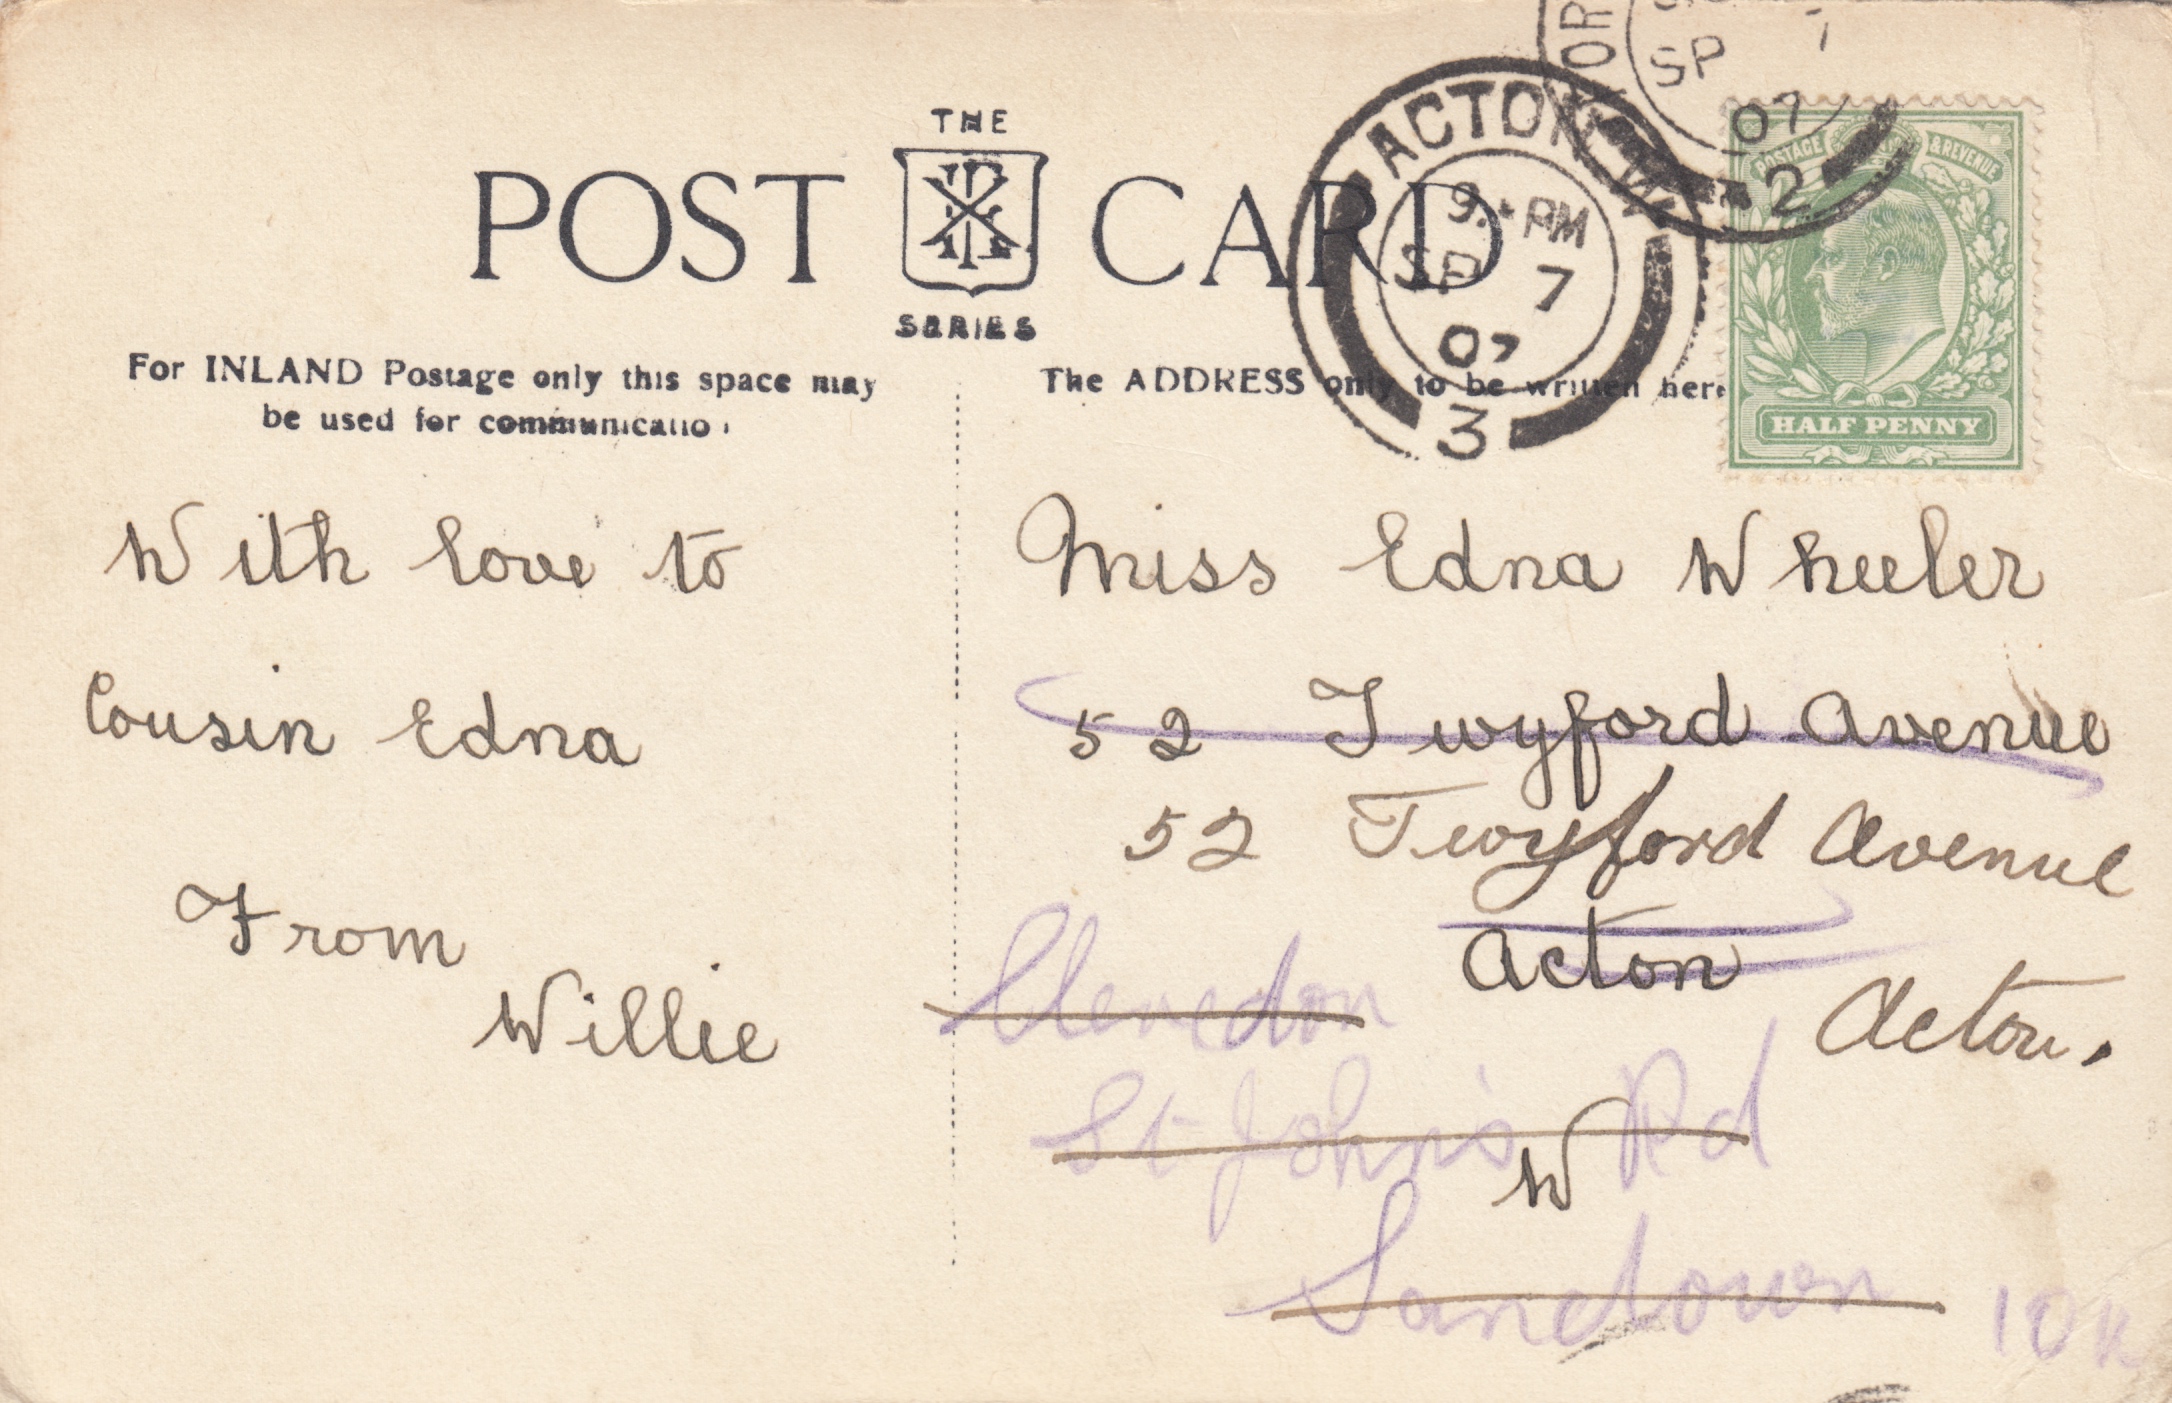 THE
POST CARD
SERIES
For INLAND Postage only this space may
be used for communicatio
The ADDRESS only to be written here
ACTON W
9. PM
SP 7
07
3
OR
SP 7
07
2
POSTAGE & REVENUE
HALF PENNY
With love to
Cousin Edna
From
Willie
Miss Edna Wheeler
52 Twyford Avenue
52 Twyford Avenue
Acton
Acton.
Clevedon
St John's Rd
W
Sandown